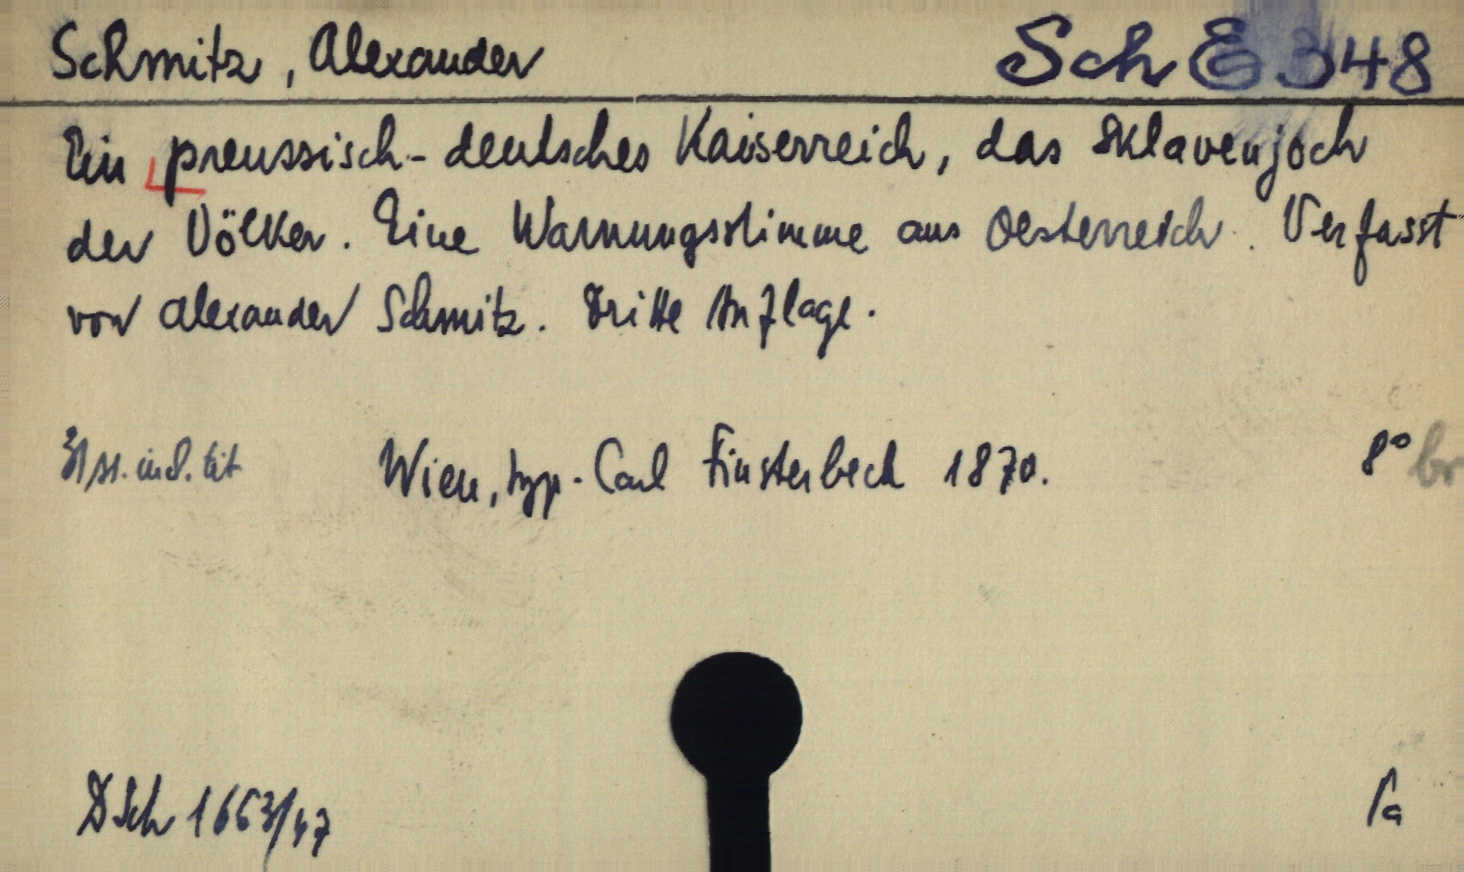 Schmitz, Alexander Sch E 348
Ein preussisch-deutsches Kaiserreich, das Sklavenjoch
der Völker. Eine Warnungsstimme aus Oesterreich. Verfasst
von Alexander Schmitz. Dritte Auflage.
31 SS. incl. tit Wien, typ. Carl Finsterbeck 1870. 8° br
DSch 1663/47